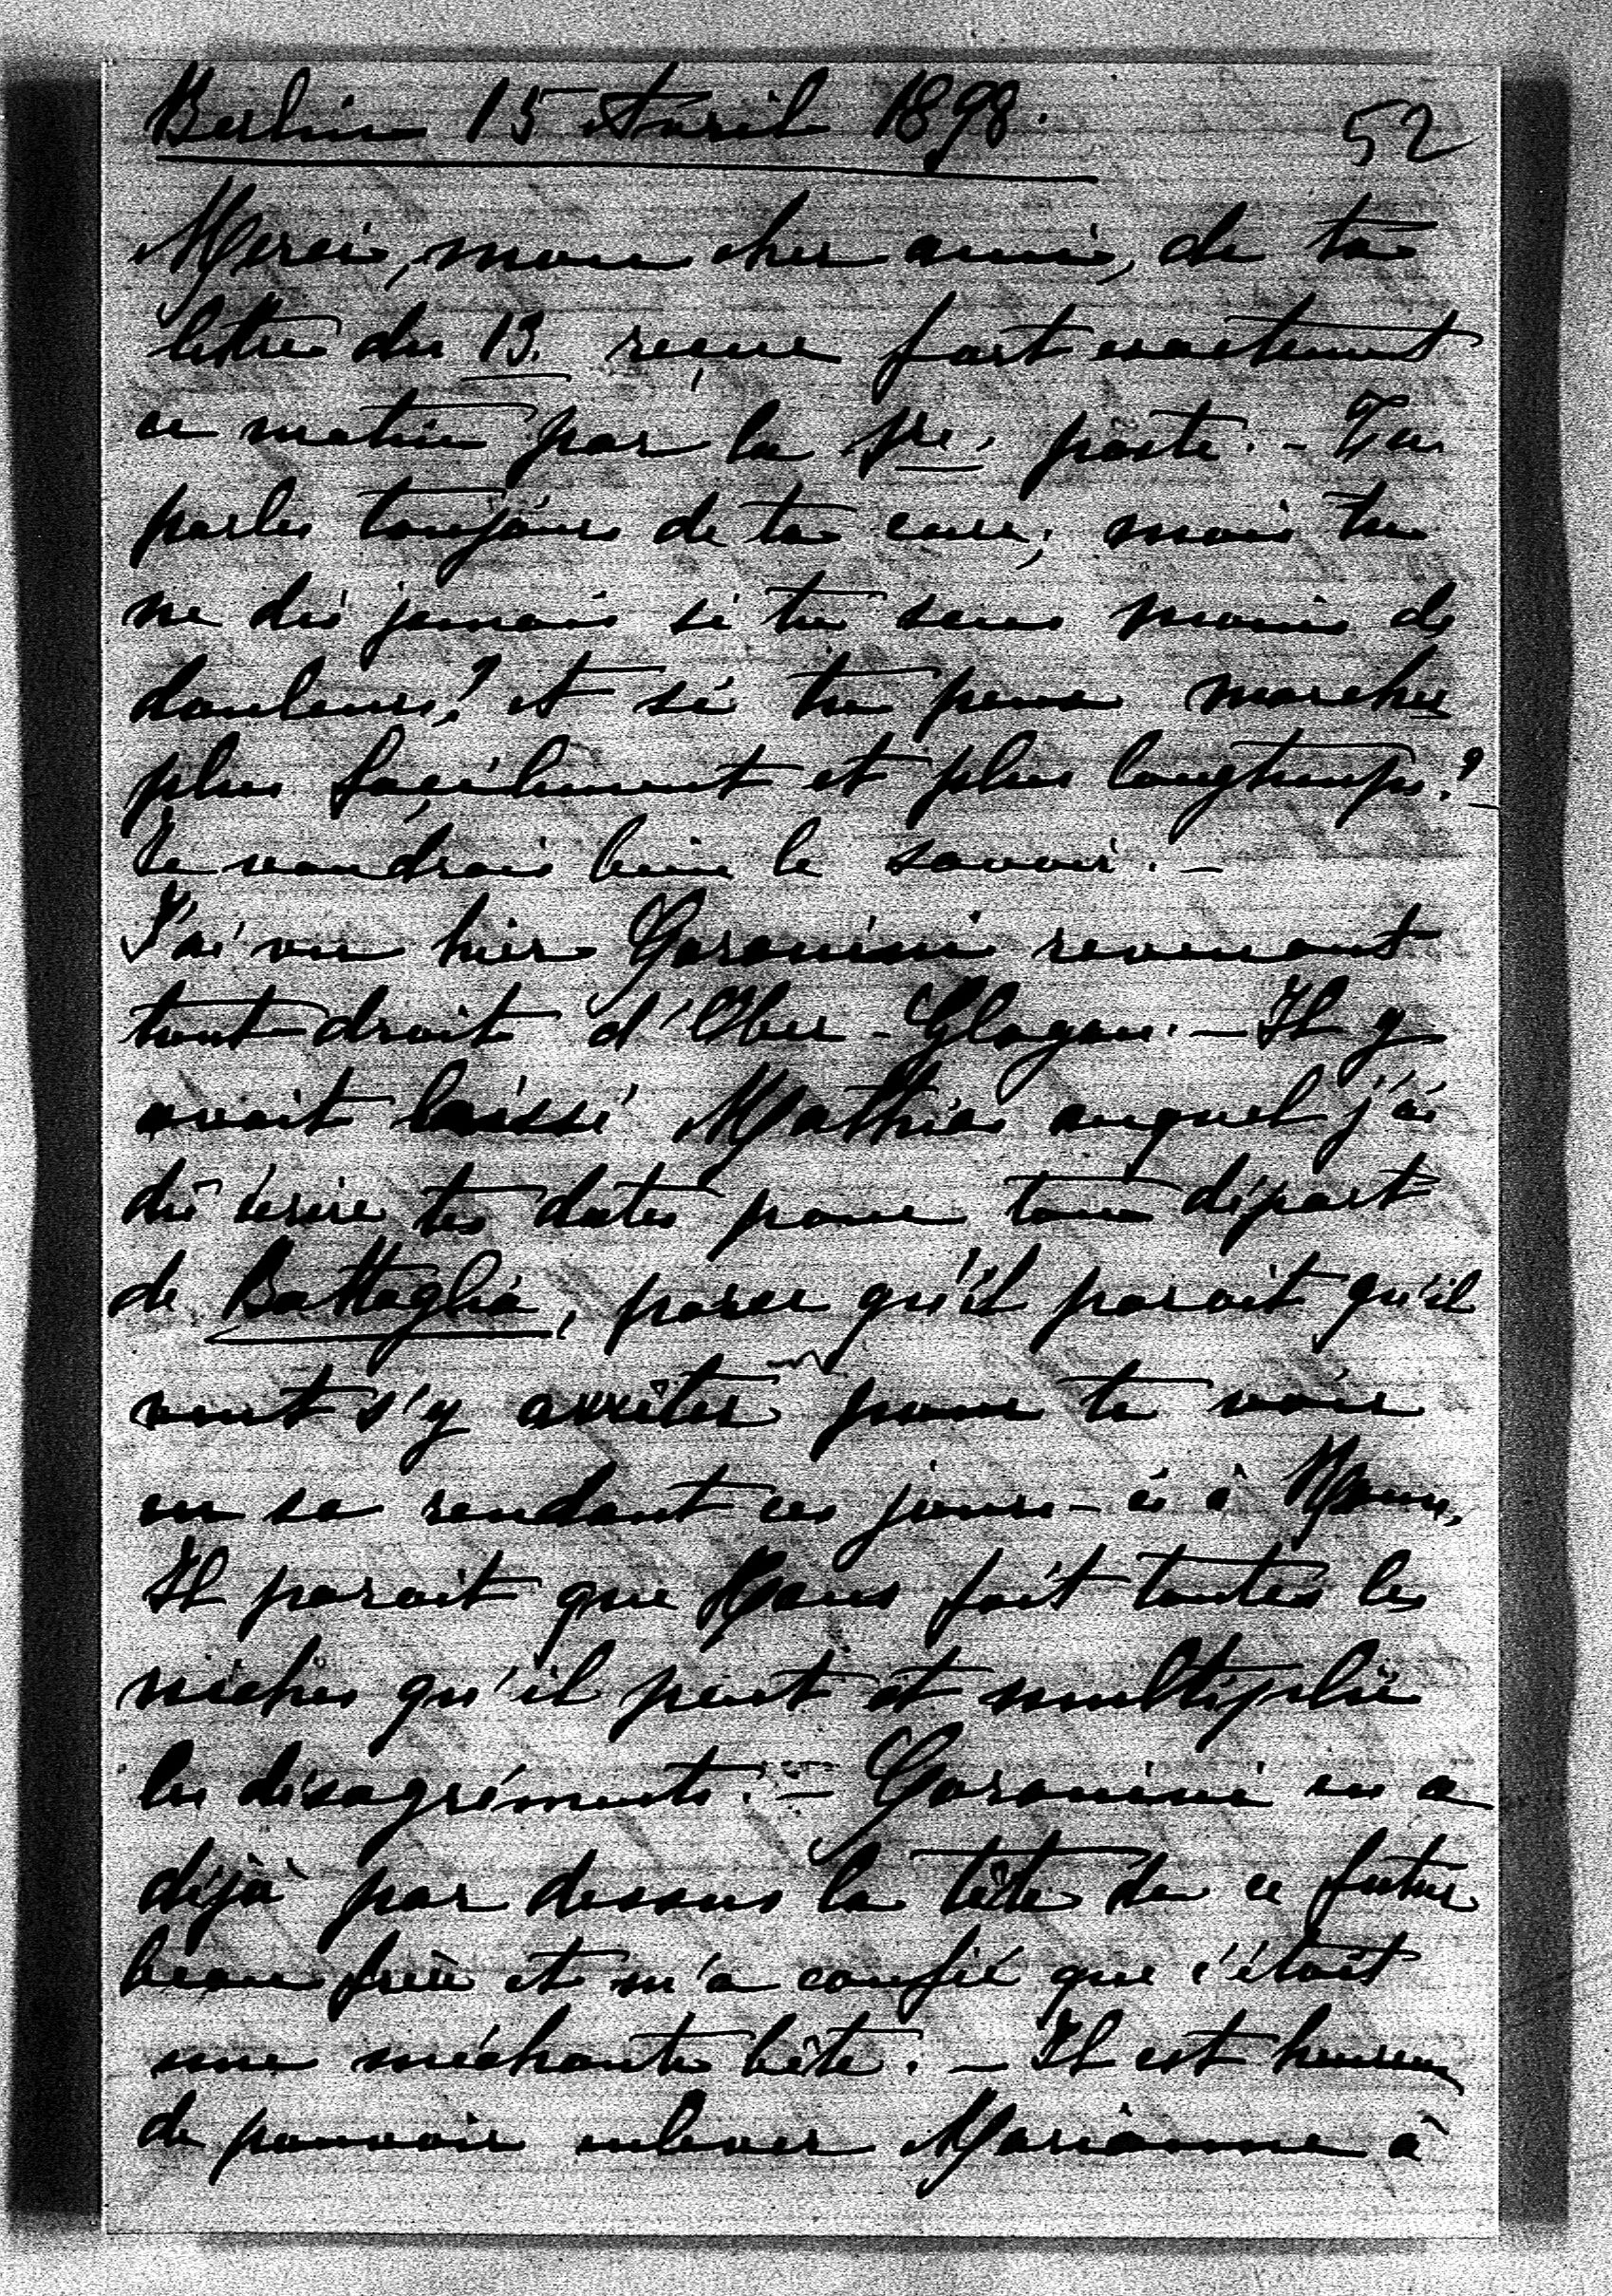 Berlin 15 Avril 1898. 52
Merci, mon cher ami, de ta
lettre du 13. reçue fort exactement
ce matin par la 1re. poste. - Tu
parles toujours de ta cure; mais tu
ne dis jamais si tu sens moins de
douleurs? et si tu peux marcher
plus façilement et plus longtemps? -
Je voudrais bien le savoir. -
J'ai vu hier Coronini revenant
tout droit d'Ober-Glogau. - Il y
avait laissé Mathias auquel j'ai
dû écrire tes dates pour ton départ
de Battaglia, parce qu'il parait qu'il
veut s'y arrêter pour te voir
en se rendant ces jours-ci à Rome.
Il parait que Hans fait toutes les
niches qu'il peut et multiplie
les désagréments. - Coronini en a
déjà par dessus la tête de ce futur
beau frère et m'a confié que c'était
une méchante bête. - Il est heureux
de pouvoir enlever Marianne à